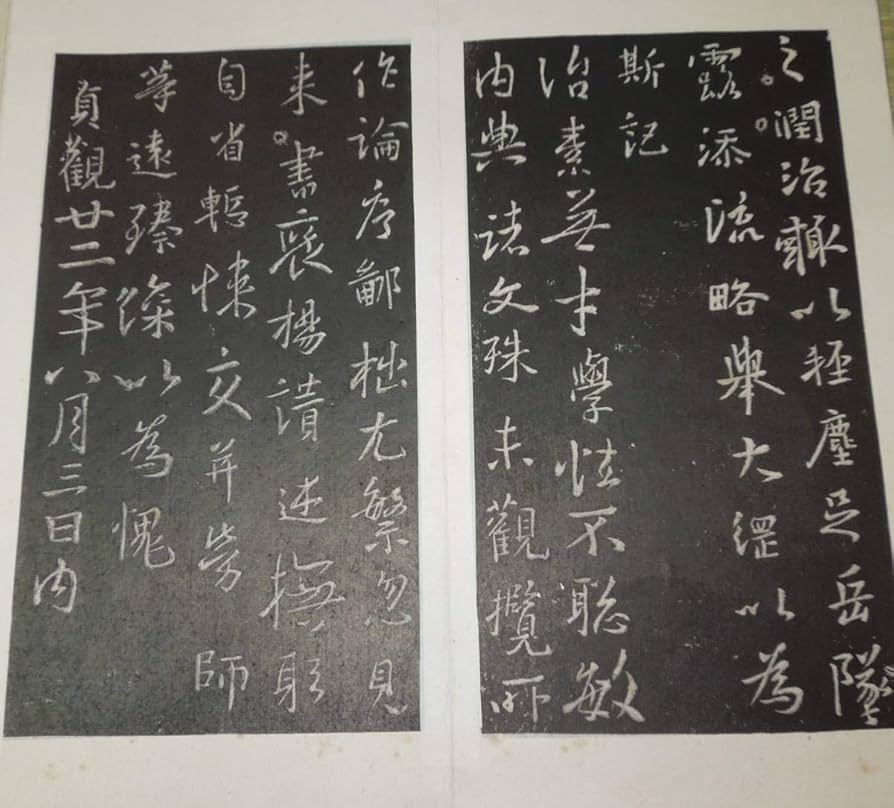 之潤治輒以輕塵足岳墜
露添流略舉大綱以為
斯記
治素無才學性不聰敏
內典諸文殊未觀攬所
作論序鄙拙尤繁忽見
來書褒揚讚述撫躬
自省慙悚交并勞 師
等遠臻深以為愧
貞觀廿二年八月三日內